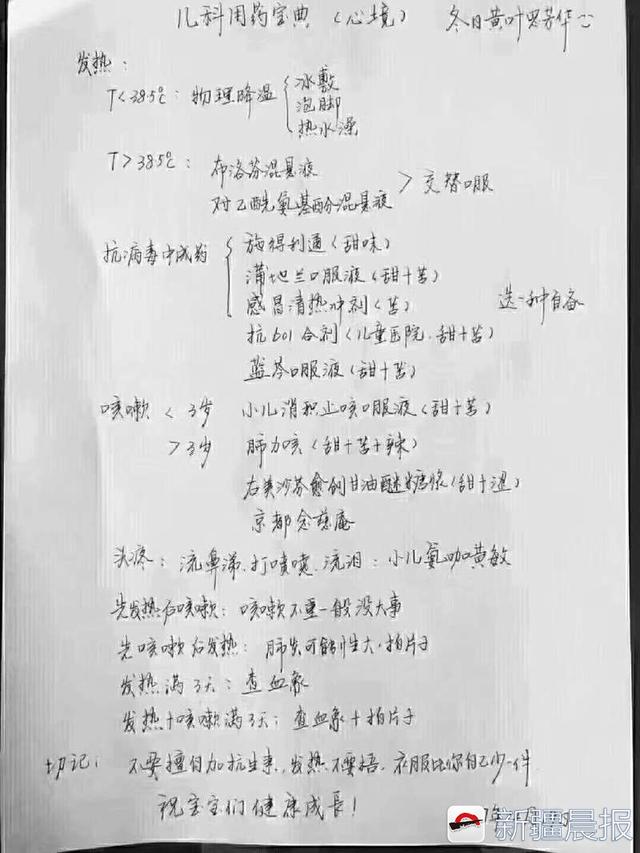 儿科用药宝典（心境） 冬日黄叶思芳华
发热：
T<38.5℃：物理降温 冰敷
泡脚
热水澡
T>38.5℃：布洛芬混悬液
对乙酰氨基酚混悬液 > 交替口服
抗病毒中成药 施得利通（甜味）
蒲地兰口服液（甜+苦）
感冒清热冲剂（苦） 选一种自备
抗601合剂（儿童医院，甜+苦）
蓝芩口服液（甜+苦）
咳嗽 <3岁 小儿消积止咳口服液（甜+苦）
>3岁 肺力咳（甜+苦+辣）
右美沙芬愈创甘油醚糖浆（甜+涩）
京都念慈庵
头疼：流鼻涕、打喷嚏、流泪：小儿氨咖黄敏
先发热后咳嗽：咳嗽不重一般没大事
先咳嗽后发热：肺炎可能性大，拍片子
发热满3天：查血象
发热+咳嗽满3天：查血象+拍片子
切记：不要擅自加抗生素，发热不要捂，衣服比你自己少一件
祝宝宝们健康成長！
新疆晨报